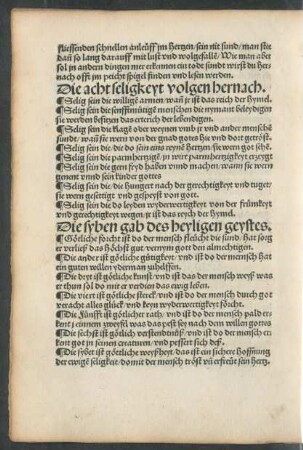 fliessenden schnellen anleüff jm hertzen/ sein nit sund/ man stee
dañ so lang darauff mit lust vnd wolgefallē/ Wie man aber
sol jn andern dingen mer erkennen ein todt sündt wirst du her
nach offt jm peicht spigel finden vnd lesen werden.
Die acht seligkeyt volgen hernach.
¶Selig sein die willigē armen/ wañ jr ist das reich der hymel.
¶Selig sein die senfftmütige menschen die nymant beleydigen
sie werden besitzen das erterich der lebendigen.
¶Selig sein die klagē oder weynen vmb jr vnd ander menschē
sunde/ wañ sie wern von der gnad gotes hie vnd dort getröst.
¶Selig sein die/ die do sein eins reynē hertzen/ sie wern got sehē.
¶Selig sein die parmhertzigē/ jn wirt parmhertzigkeyt erzeygt
¶Selig sein die gern fryd haben vnnd machen/ wann sie wern
genent vnnd sein kinder gottes
¶Selig sein die/ die hungert nach der gerechtigkeyt vnd tuget/
sie wern gesetigt vnd gespeyst von gott.
¶Selig sein die do leyden wyderwertigkeyt von der frümkeyt
vnd gerechtigkeyt wegen/ jr ist das reych der hymel.
Die syben gab des heyligen geystes.
¶Götliche forcht ist do der mensch fleücht die sünd. Hat sorg
er verließ das höchst gut verprm gott den almechtigen.
¶Die ander ist götliche gütigkeyt/ vnd ist do der mensch hat
ein guten willen yderman zuhelffen.
¶Die dryt ist götliche kunst vnd ist das der mensch weyß was
er thun sol do mit er verdien das ewig leben.
¶Die viert ist götliche sterck/ vnd ist do der mensch durch got
veracht alles glück vnd keyn wyderwertigkeyt förcht.
¶Die Fünfft ist götlicher rath/ vnd ist do der mensch pald er-
kent jn einem zweyfel was das pest sey nach dem willen gottes
¶Die sechst ist götlich verstendtnuß/ vnd ist do der mensch er
kent got jn seinen creaturen/ vnd pessert sich deß.
¶Die sybēt ist göttliche weyßheyt/ das ist ein sichere hoffnung
der ewigē seligkeit/ do mit der mensch tröst vñ erfreüt sein hertz.